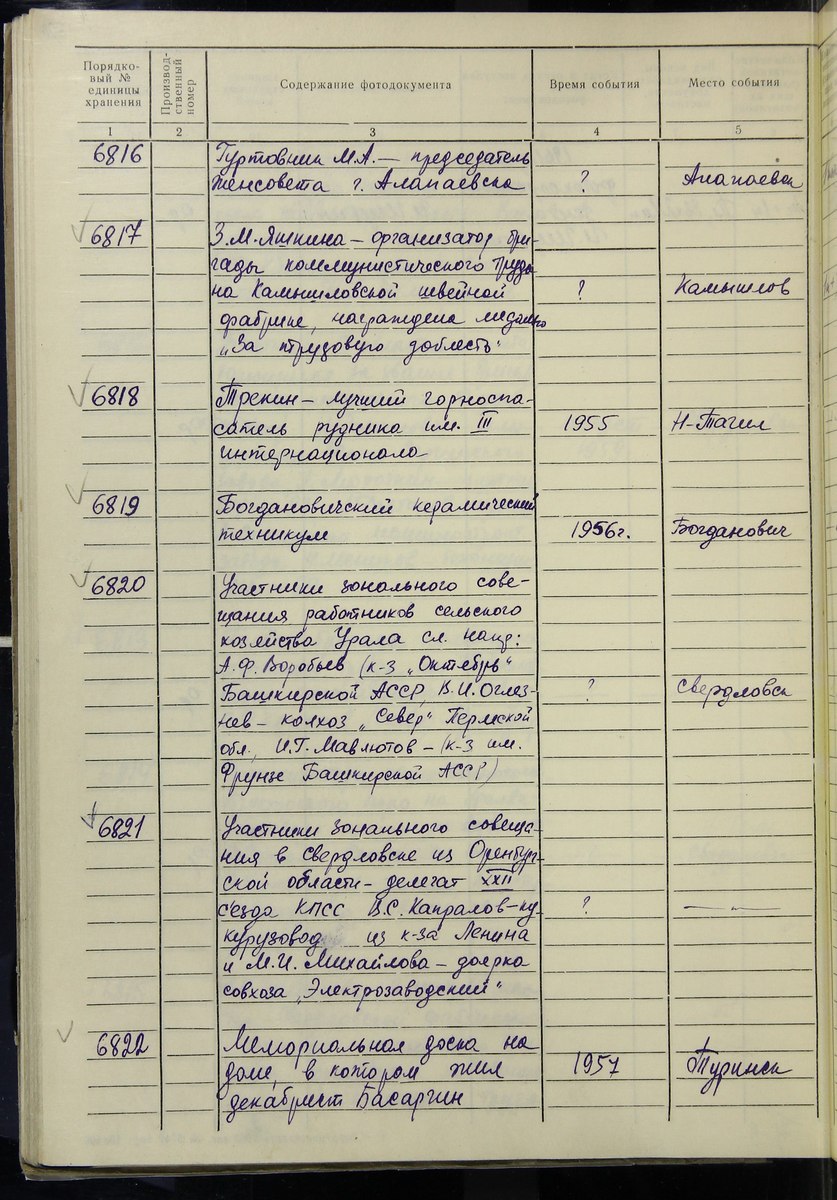 Порядко-
вый №
единицы
хранения
Производ-
ственный
номер
Содержание фотодокумента
Время события
Место события
1 2 3 4 5
6816 Гуртовник М.А. – председатель
женсовета г. Алапаевска ? Алапаевск
6817 З.М. Яшкина – организатор бри-
гады коммунистического труда
на Камышловской швейной ? Камышлов
фабрике, награждена медалью
„За трудовую доблесть"
6818 Трекин – лучший горноспа-
сатель рудника им. III 1955 Н-Тагил
интернационала
6819 Богдановичский керамический
техникум 1956г. Богданович
6820 Участники зонального сове-
щания работников сельского
хозяйства Урала сл. напр:
А.Ф. Воробьев (к-з „Октябрь"
Башкирской АССР, В.И. Оглез- ? Свердловск
нев – колхоз „Север" Пермской
обл., И.Г. Мавлютов – (к-з им.
Фрунзе Башкирской АССР)
6821 Участники зонального совеща-
ния в Свердловске из Оренбург-
ской области – делегат XXII
с'езда КПСС В.С. Капралов – ку- ? —„—
курузовод из к-за Ленина
и М.И. Михайлова – доярка
совхоза „Электрозаводский"
6822 Мемориальная доска на
доме, в котором жил 1957 Туринск
декабрист Басаргин